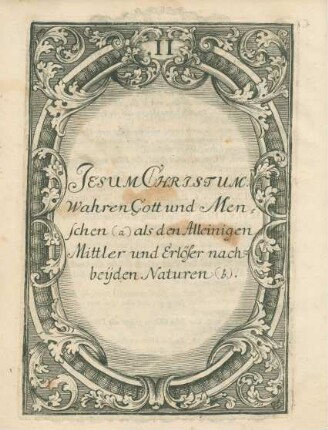 II
JESUM CHRISTUM.
Wahren Gott und Men-
schen (a) als den Alleinigen
Mittler und Erlöser nach
beÿden Naturen (b).